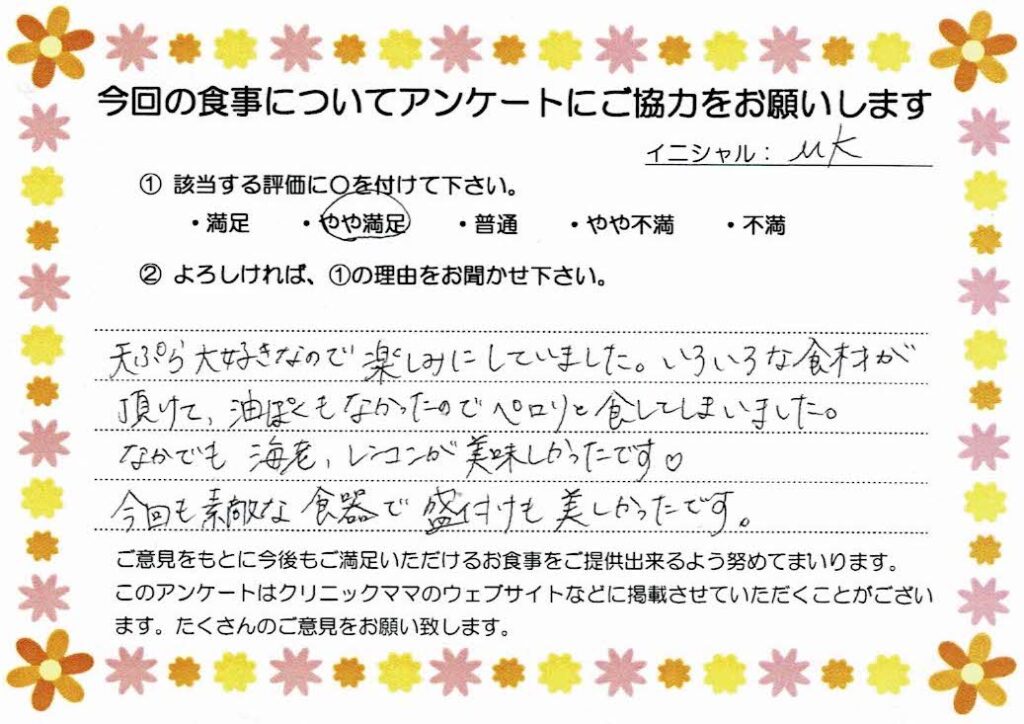 今回の食事についてアンケートにご協力をお願いします
イニシャル： MK
① 該当する評価に〇を付けて下さい。
・満足 ・やや満足 ・普通 ・やや不満 ・不満
② よろしければ、①の理由をお聞かせ下さい。
天ぷら大好きなので楽しみにしていました。いろいろな食材が
頂けて、油ぽくもなかったのでペロリと食してしまいました。
なかでも海老、レンコンが美味しかったです♡
今回も素敵な食器で盛付けも美しかったです。
ご意見をもとに今後もご満足いただけるお食事をご提供出来るよう努めてまいります。
このアンケートはクリニックママのウェブサイトなどに掲載させていただくことがござい
ます。たくさんのご意見をお願い致します。